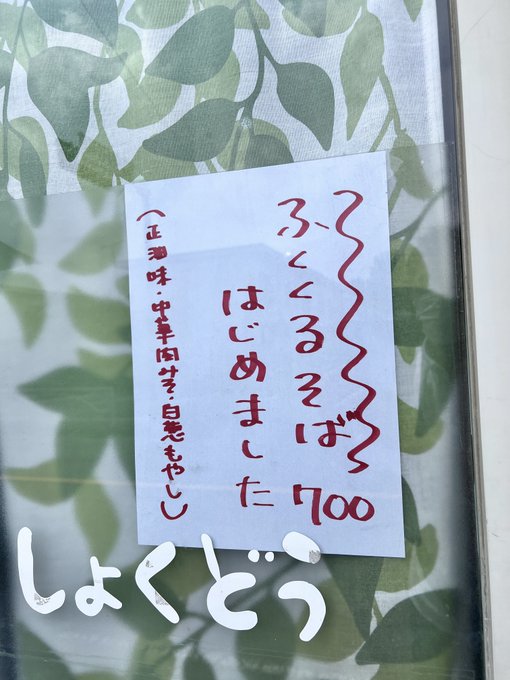 ふくくるそば 700
はじめました
(正油味・中華肉みそ・白葱もやし)
しょくどう